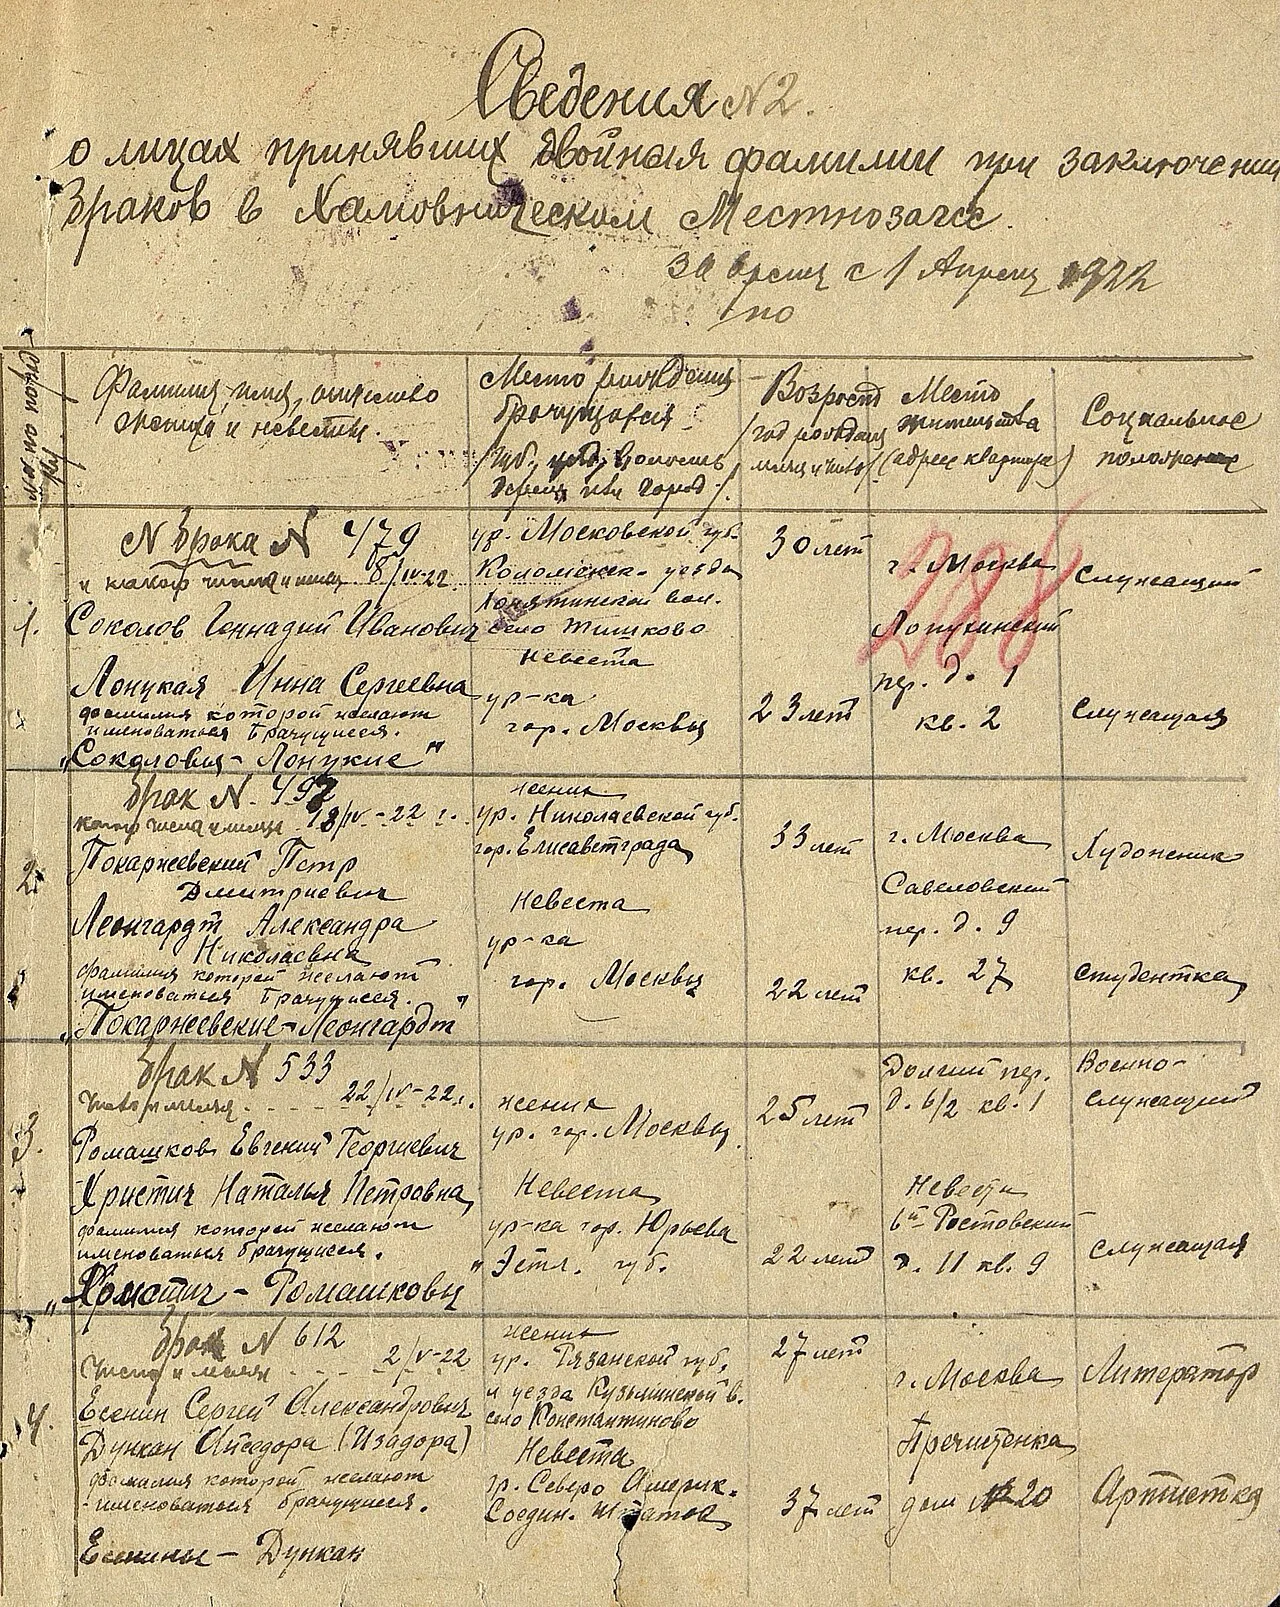 Сведения №2.
о лицах принявших двойныя фамилии при заключении
браков в Хамовническом Местнозагсе
за время с 1 Апреля 1922
по
Фамилия, имя, отчество
жениха и невесты.
Место рождения
брачущегося
/губ., уезд, волость
деревня или город./
Возраст
/год рождения
месяц и число/
Место
жительства
(адрес квартиры)
Социальное
положение
288
1.
№ брака № 479
и какого числа и месяца 8/IV-22.
Соколов Геннадий Иванович
Лонуцкая Инна Сергеевна
фамилия которой желают
именоваться брачущиеся.
„Соколовы-Лонуцкие"
ур. Московской губ.
Коломенск. уезда
Хонятинской вол.
село Тишково
невеста
ур-ка
гор. Москвы
30 лет
23 лет
г. Москва
Лопухинский
пер. д. 1
кв. 2
Служащий
Служащая
2.
брак № 497
какого числа и месяца 18/IV-22 г.
Покаржевский Петр
Дмитриевич
Леонгардт Александра
Николаевна
фамилия которой желают
именоваться брачущиеся.
„Покаржевские-Леонгардт"
жених
ур. Николаевской губ.
гор. Елисаветграда
Невеста
ур-ка
гор. Москвы
33 лет
22 лет
г. Москва
Савеловский
пер. д. 9
кв. 27
Художник
студентка
3.
брак № 533
число и месяц 22/IV-22 г.
Ромашков Евгений Георгиевич
Христич Наталья Петровна
фамилия которой желают
именоваться брачущиеся.
„Христич-Ромашковы"
жених
ур. гор. Москвы
Невеста
ур-ка гор. Юрьева
Эстл. губ.
25 лет
22 лет
Долгий пер.
д. 6/2 кв. 1
Невесты
6й Ростовский
д. 11 кв. 9
Военно-
служащий
служащая
4.
брак № 612
число и месяц 2/V-22
Есенин Сергей Александрович
Дункан Айседора (Изадора)
фамилия которой желают
именоваться брачущиеся.
Есенины-Дункан
жених
ур. Рязанской губ.
и уезда Кузьминской в.
село Константиново
Невеста
гр. Северо Америк.
Соедин. Штатов
27 лет
37 лет
г. Москва
Пречистенка
дом № 20
Литератор
Артистка